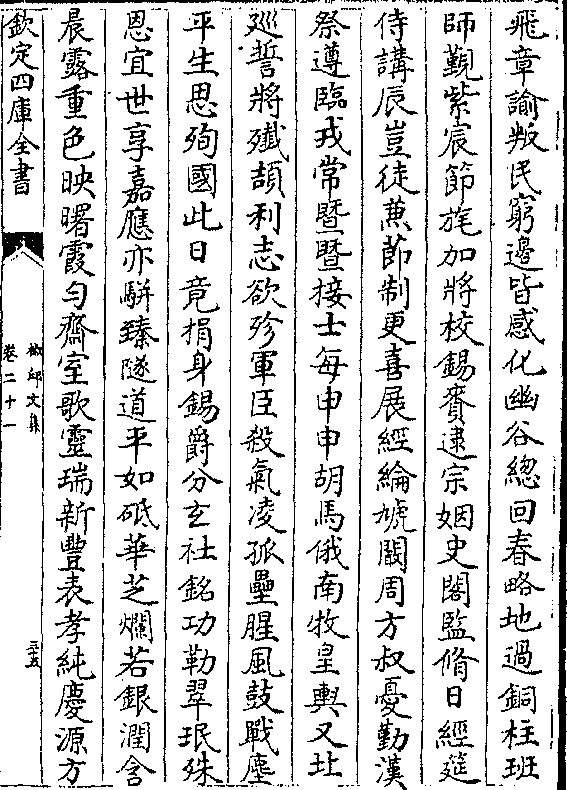 飛章諭叛民窮邊皆感化幽谷總回春略地過銅柱班
師覲紫宸節旄加將校錫賚逮宗姻史閣監脩日經筵
侍講辰豈徒兼節制更喜展經綸虓闞周方叔憂勤漢
祭遵臨戎常暨暨接士每申申胡馬俄南牧皇輿又北
廵誓將殱頡利志欲殄軍臣殺氣凌孤壘腥風鼓戰塵
平生思殉國此日竟捐身錫爵分玄社銘功勒翠珉殊
恩宜世享嘉應亦駢臻隧道平如砥華芝爛若銀潤含
晨露重色映曙霞勻齋室歌靈瑞新豐表孝純慶源方
欽定四庫全書
卷二十一
三十五